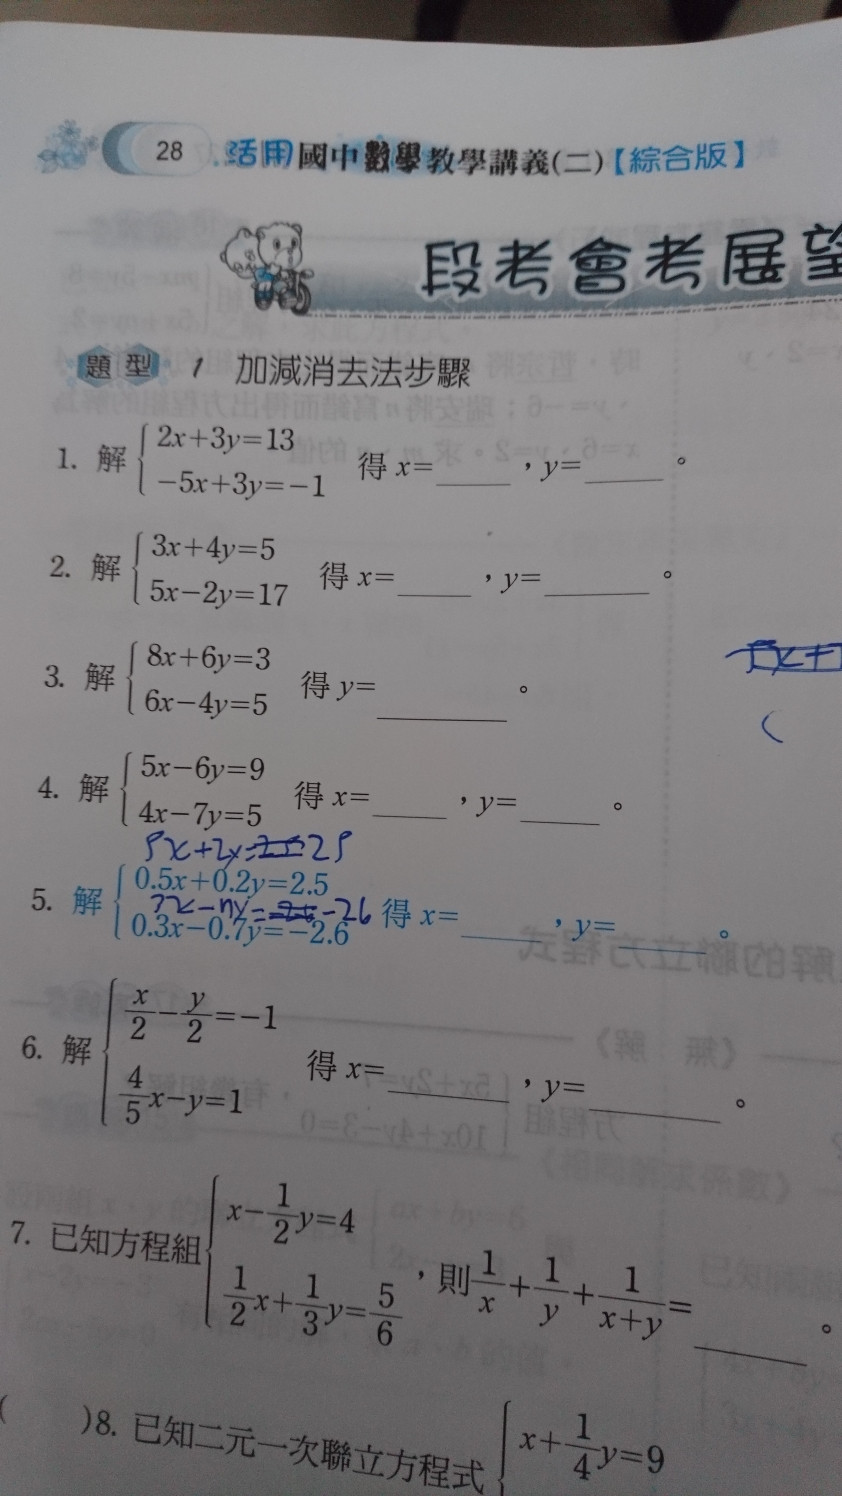 28 活用國中數學教學講義(二)【綜合版】
段考會考展望
題型 1 加減消去法步驟
1. 解 { 2x+3y=13
-5x+3y=-1 得 x=____，y=____。
2. 解 { 3x+4y=5
5x-2y=17 得 x=____，y=____。
3. 解 { 8x+6y=3
6x-4y=5 得 y=____。
4. 解 { 5x-6y=9
4x-7y=5 得 x=____，y=____。
5. 解 { 0.5x+0.2y=2.5
0.3x-0.7y=-2.6 得 x=____，y=____。
6. 解 { x/2-y/2=-1
4/5x-y=1 得 x=____，y=____。
7. 已知方程組 { x-1/2y=4
1/2x+1/3y=5/6 ，則1/x+1/y+1/(x+y)=____。
( )8. 已知二元一次聯立方程式 { x+1/4y=9